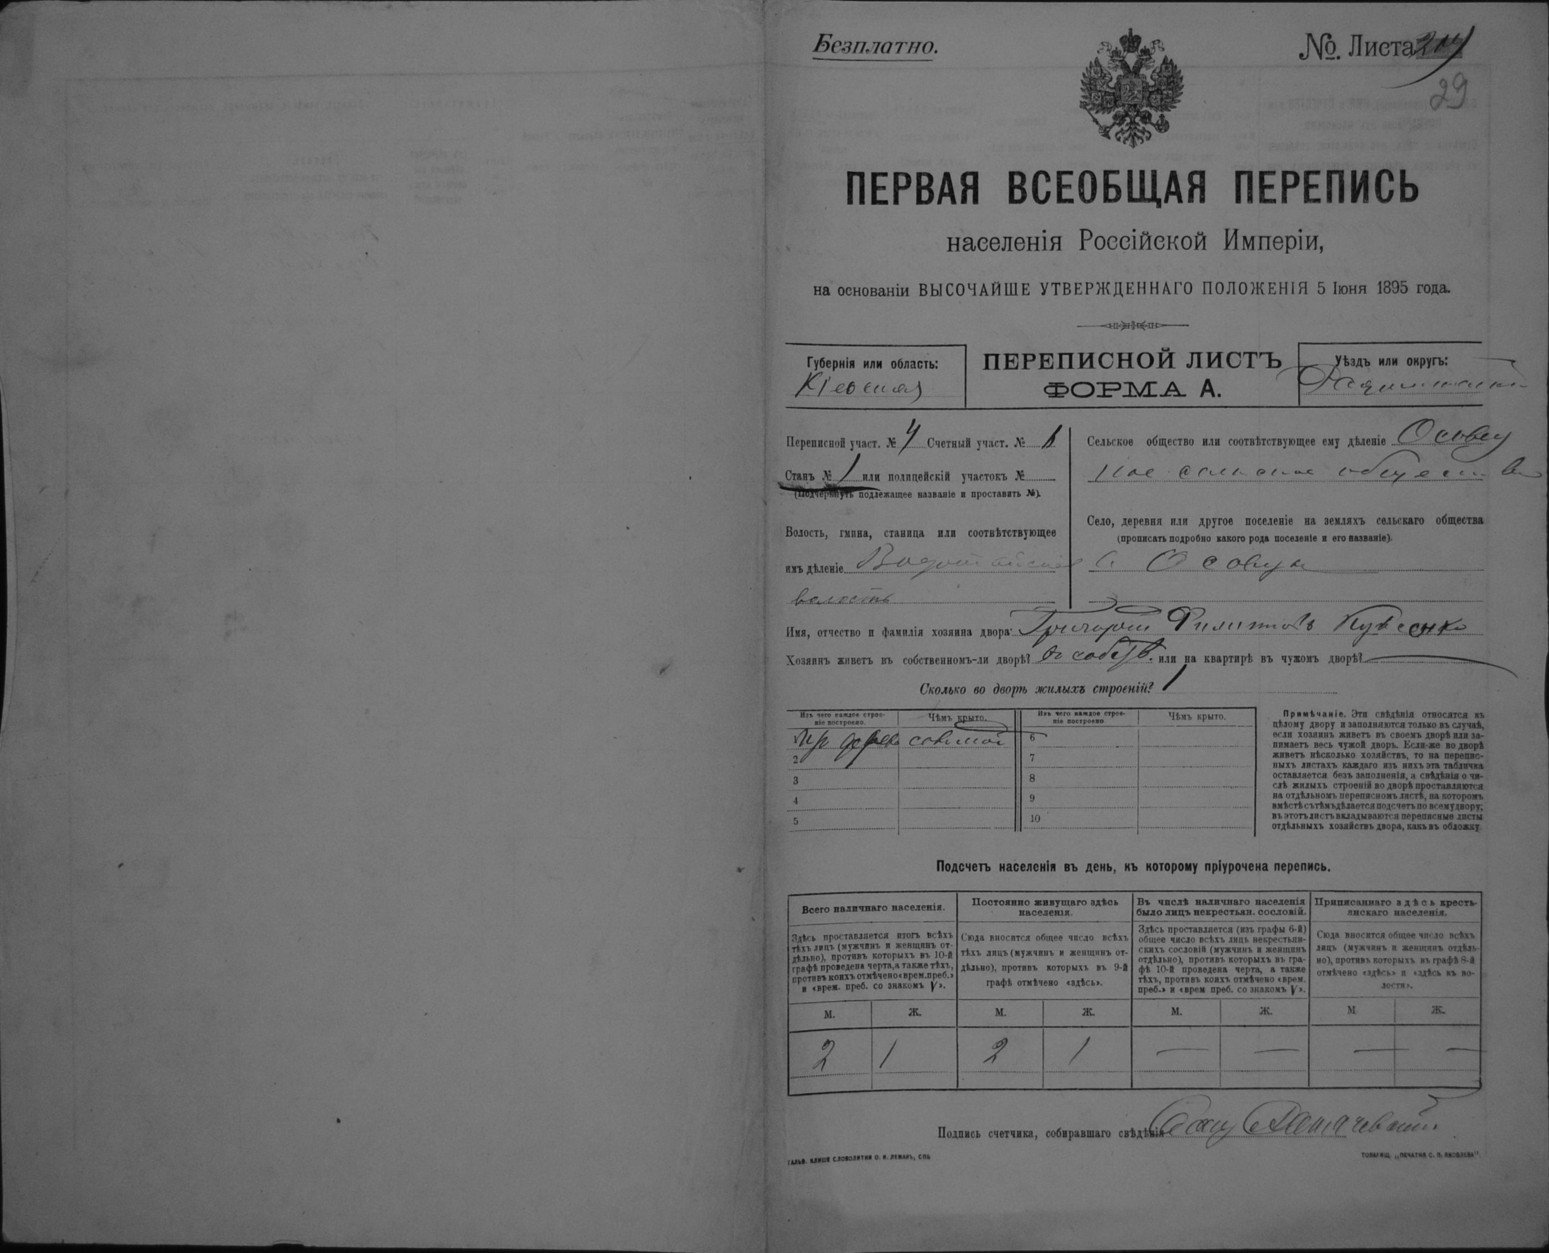 Безплатно.
№. Листа
29
ПЕРВАЯ ВСЕОБЩАЯ ПЕРЕПИСЬ
населенія Россійской Имперіи,
на основаніи ВЫСОЧАЙШЕ УТВЕРЖДЕННАГО ПОЛОЖЕНІЯ 5 Іюня 1895 года.
Губернія или область:
Кіевская
ПЕРЕПИСНОЙ ЛИСТЪ
ФОРМА А.
Уѣздъ или округъ:
Переписной участ. № 4 Счетный участ. №
Станъ № 1 или полицейскій участокъ №
(Подчеркнуть подлежащее названіе и проставить №).
Волость, гмина, станица или соотвѣтствующее
имъ дѣленіе
волость
Сельское общество или соотвѣтствующее ему дѣленіе Осовец
кое сельское общество
Село, деревня или другое поселеніе на земляхъ сельскаго общества
(прописать подробно какого рода поселеніе и его названіе).
с Осовцы
Имя, отчество и фамилія хозяина двора: Григорій Филиповъ
Хозяинъ живетъ въ собственномъ-ли дворѣ? въ собств. или на квартирѣ въ чужомъ дворѣ?
Сколько во дворѣ жилыхъ строеній? 1
Изъ чего каждое строе-
ніе построено.
Чѣмъ крыто.
Изъ чего каждое строе-
ніе построено
Чѣмъ крыто.
Изъ дерева соломой 6
2 7
3 8
4 9
5 10
Примѣчаніе. Эти свѣдѣнія относятся къ
цѣлому двору и заполняются только въ случаѣ,
если хозяинъ живетъ въ своемъ дворѣ или за-
нимаетъ весь чужой дворъ. Если-же во дворѣ
живетъ нѣсколько хозяйствъ, то на перепис-
ныхъ листахъ каждаго изъ нихъ эта табличка
оставляется безъ заполненія, а свѣдѣнія о чи-
слѣ жилыхъ строеній во дворѣ проставляются
на отдѣльномъ переписномъ листѣ, на которомъ
вмѣстѣ съ тѣмъ дѣлается подсчетъ по всему двору;
въ этотъ листъ вкладываются переписные листы
отдѣльныхъ хозяйствъ двора, какъ въ обложку.
Подсчетъ населенія въ день, къ которому пріурочена перепись.
Всего наличнаго населенія.
Здѣсь проставляется итогъ всѣхъ
тѣхъ лицъ (мужчинъ и женщинъ от-
дѣльно), противъ которыхъ въ 10-й
графѣ проведена черта, а также тѣхъ,
противъ коихъ отмѣчено «врем. преб.»
и «врем. преб. со знакомъ V».
Постоянно живущаго здѣсь
населенія.
Сюда вносится общее число всѣхъ
тѣхъ лицъ (мужчинъ и женщинъ от-
дѣльно), противъ которыхъ въ 9-й
графѣ отмѣчено «здѣсь».
Въ числѣ наличнаго населенія
было лицъ некрестьян. сословій.
Здѣсь проставляется (изъ графы 6-й)
общее число всѣхъ лицъ некрестьян-
скихъ сословій (мужчинъ и женщинъ
отдѣльно), противъ которыхъ въ гра-
фѣ 10-й проведена черта, а также
тѣхъ, противъ коихъ отмѣчено «врем.
преб.» и «врем преб. со знакомъ V».
Приписаннаго здѣсь кресть-
янскаго населенія.
Сюда вносится общее число всѣхъ
лицъ (мужчинъ и женщинъ отдѣль-
но), противъ которыхъ въ графѣ 8-й
отмѣчено «здѣсь» и «здѣсь къ во-
лости».
М. Ж. М. Ж. М. Ж. М Ж.
2 1 2 1 — — — —
Подпись счетчика, собиравшаго свѣдѣнія
ТОВАРИЩ. „ПЕЧАТНЯ С. П. ЯКОВЛЕВА"